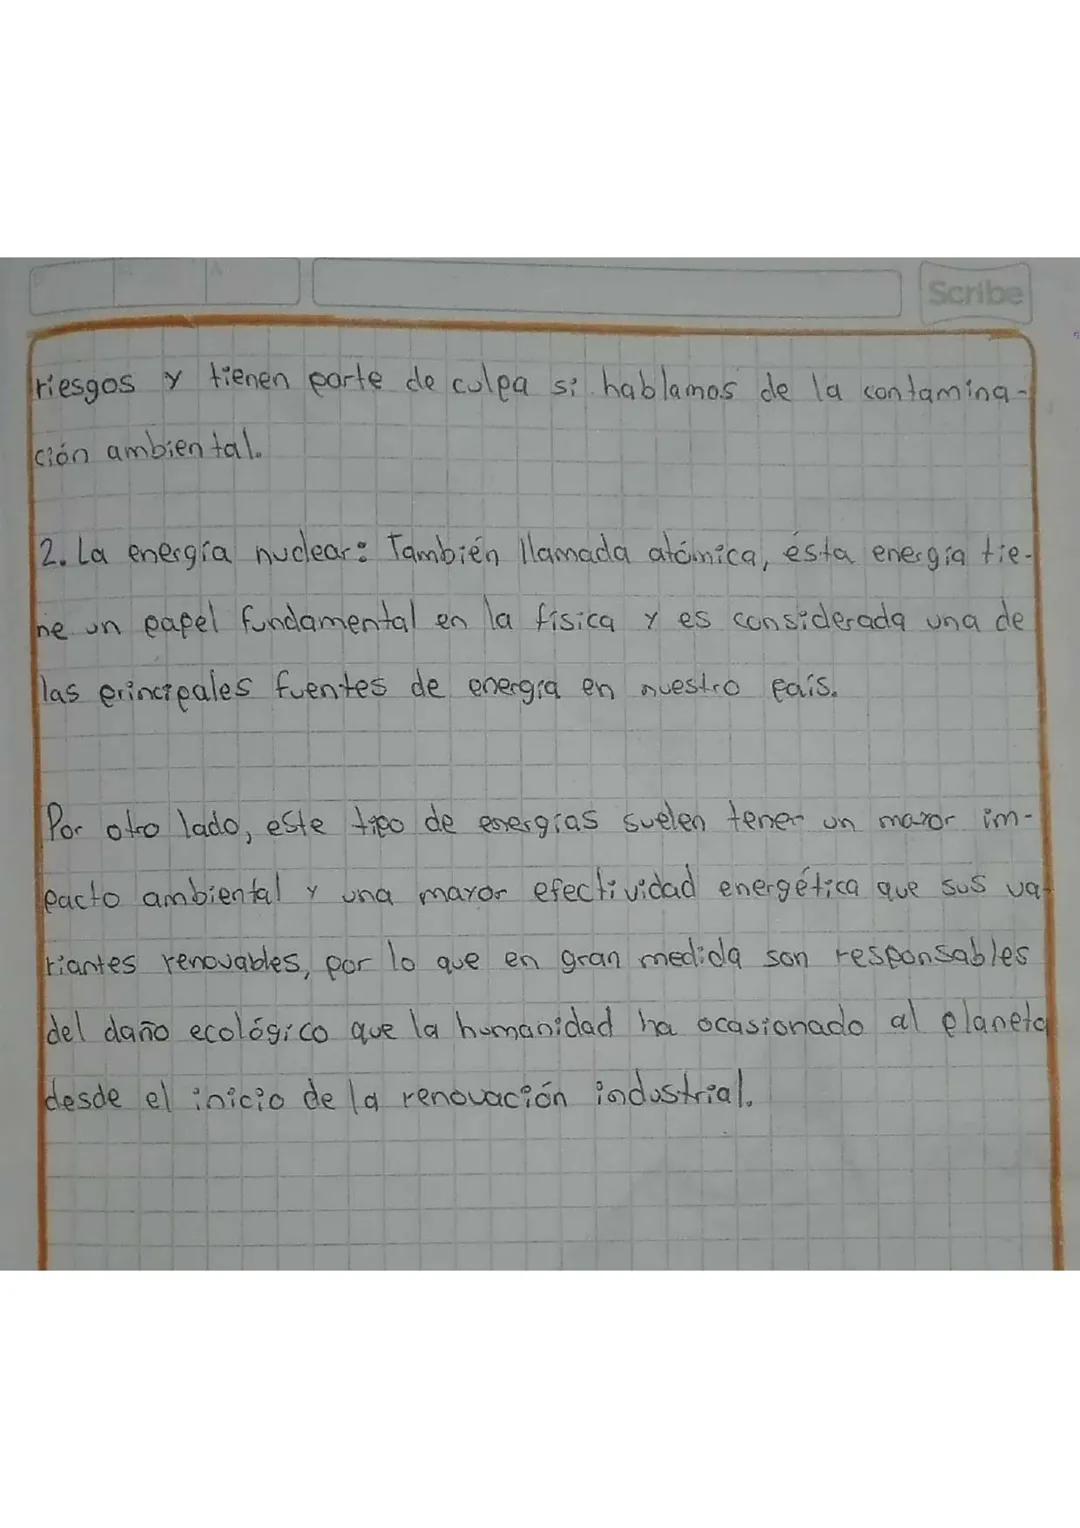 Scribe
riesgos y tienen parte de culpa si hablamos de la contamina-
ción ambiental.
2. La energía nuclear: También llamada atómica, ésta energía tie-
ne un papel fundamental en la física y es considerada una de
las principales fuentes de energía en nuestro país.
Por otro lado, este tipo de energías suelen tener un mayor im-
pacto ambiental y una mayor efectividad energética que sus va-
riantes renovables, por lo que en gran medida son responsables
del daño ecológico que la humanidad ha ocasionado al planeta
desde el inicio de la renovación industrial.